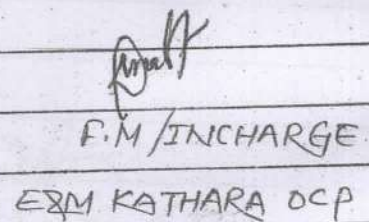 F.M/INCHARGE
E&M KATHARA OCP